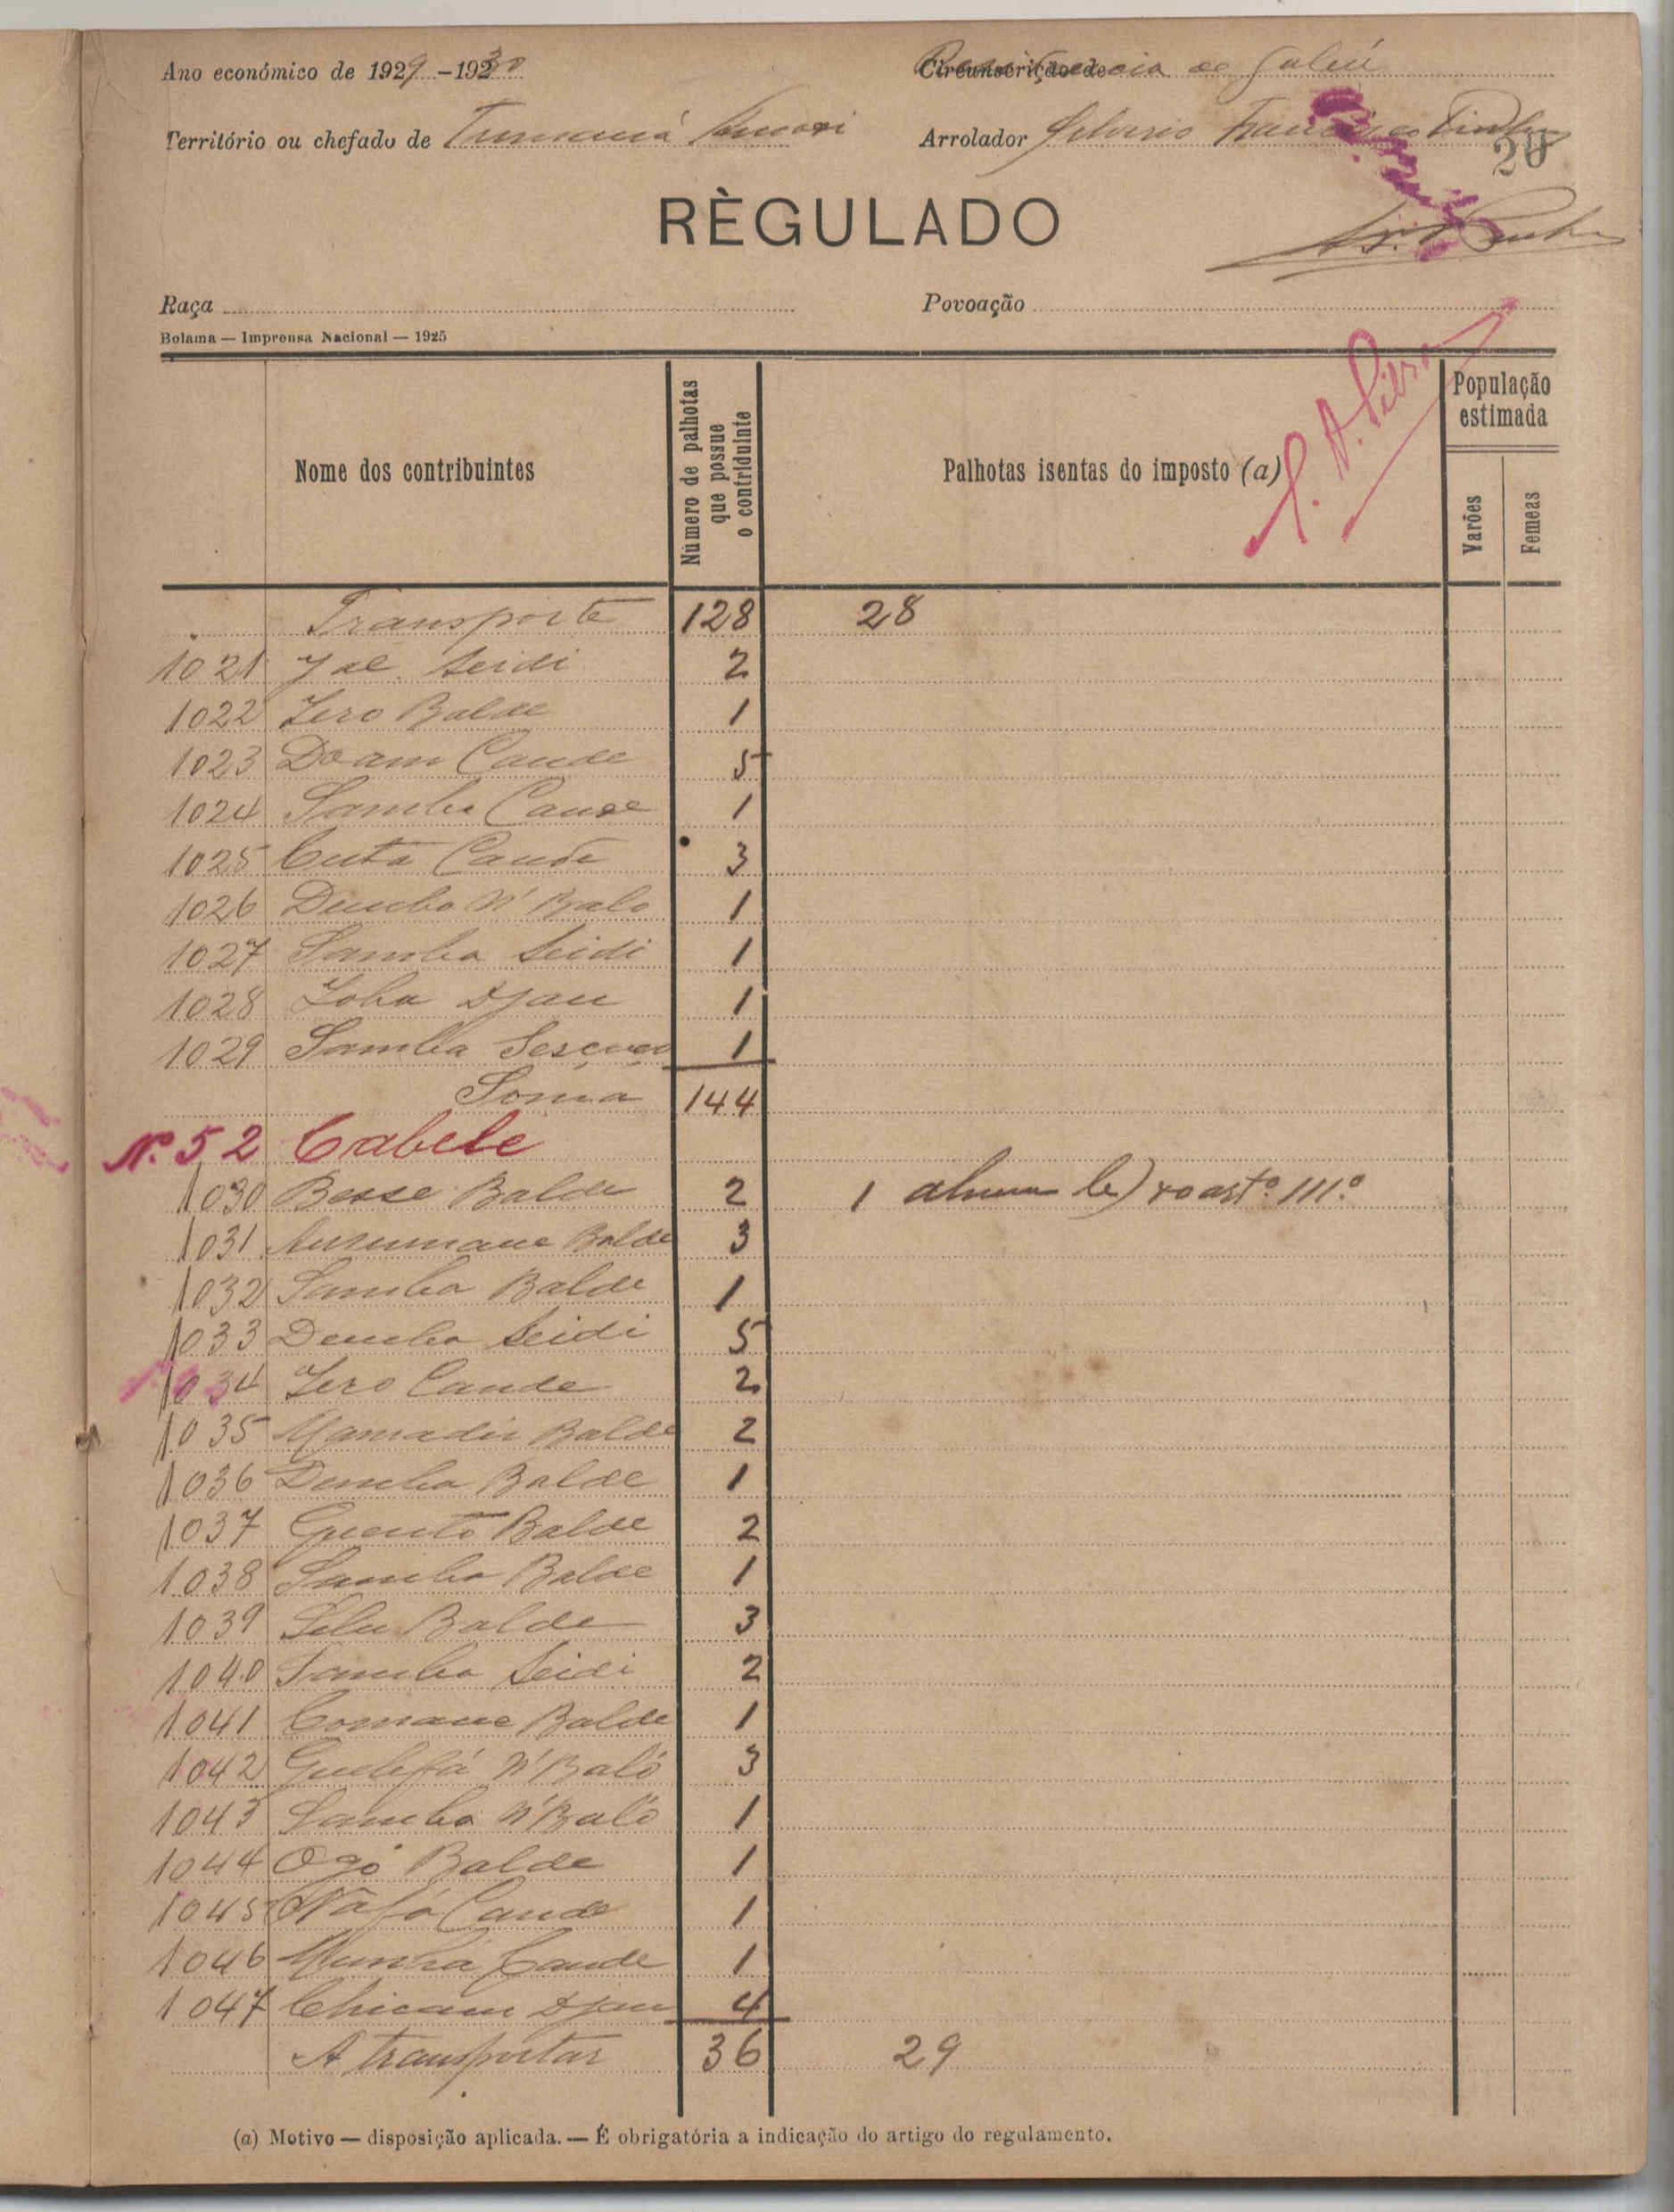 Ano económico de 1929-1930
Circunscrição de
Território ou chefado de Tumaná
Arrolador Francisco
20
RÈGULADO
Raça
Povoação
Bolama — Imprensa Nacional — 1925
Nome dos contribuintes
Nùmero de palhotas que possue o contriduinte
Palhotas isentas do imposto (a)
População estimada
Varões
Femeas
Transporte 128 28
1021 Seidi 2
1022 Jero Balde 1
1023 Doam Cande 5
1024 Samba Cande 1
1025 Cuta Cande 3
1026 Demba N'Balo 1
1027 Samba Seidi 1
1028 Joba Djau 1
1029 Samba 1
Soma 144
N.º 52 Cabele
1030 Besse Balde 2 1 ao artº 111.º
1031 Balde 3
1032 Samba Balde 1
1033 Demba Seidi 5
1034 Jero Cande 2
1035 Mamadú Balde 2
1036 Demba Balde 1
1037 Balde 2
1038 Samba Balde 1
1039 Balde 3
1040 Samba Seidi 2
1041 Comane Balde 1
1042 Guelefá N'Baló 3
1043 Samba N'Baló 1
1044 Balde 1
1045 Cande 1
1046 Cande 1
1047 Djau 4
A transportar 36 29
(a) Motivo — disposição aplicada. — É obrigatória a indicação do artigo do regulamento.